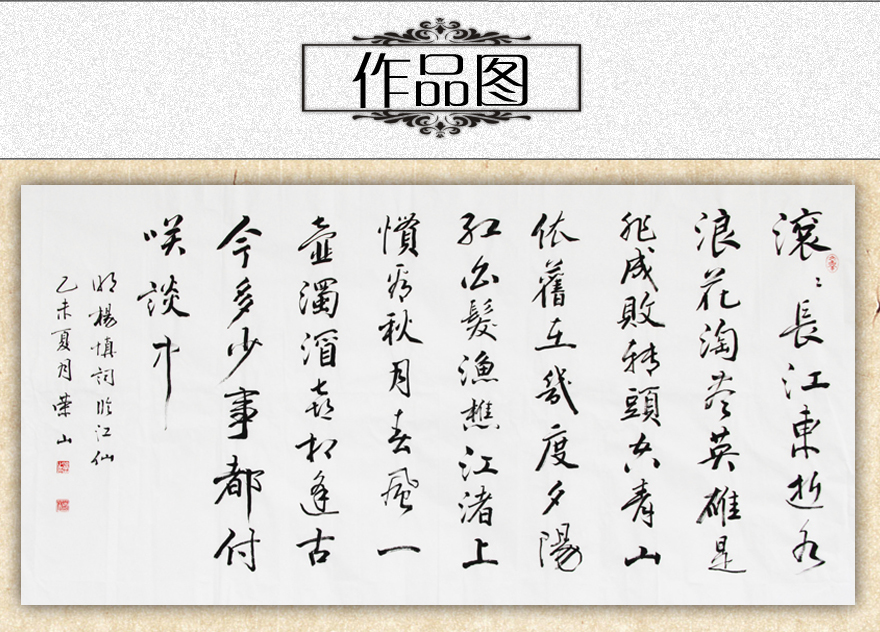 作品图
滚滚長江東逝水
浪花淘尽英雄是
非成敗转頭空青山
依舊在幾度夕陽
红白髮漁樵江渚上
慣看秋月春風一
壺濁酒喜相逢古
今多少事都付
咲談中
明楊慎詞临江仙
乙未夏月荣山